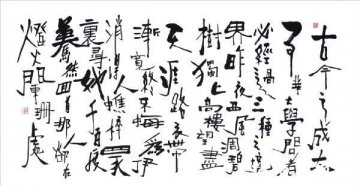 古今之成大
事業大學問者
必經過三種之境
界昨夜西風凋碧
樹獨上高樓望盡
天涯路衣帶
漸寬終不悔為伊
消得人憔悴眾
裏尋他千百度
驀然回首那人却在
燈火闌珊處